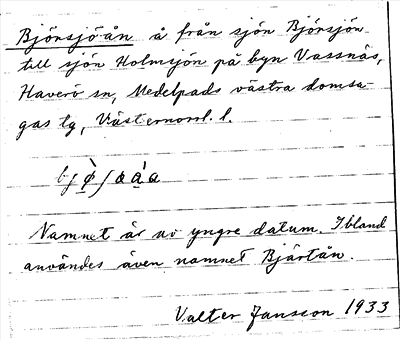 Björnsjö-ån å från sjön Björsjön
till sjön Holmsjön på byn Vassnäs,
Haverö sn, Medelpads västra domsa-
gas tg, Västernorrl. l.
Namnet är av yngre datum. Ibland
användes även namnet Bjärtån.
Valter Jansson 1933